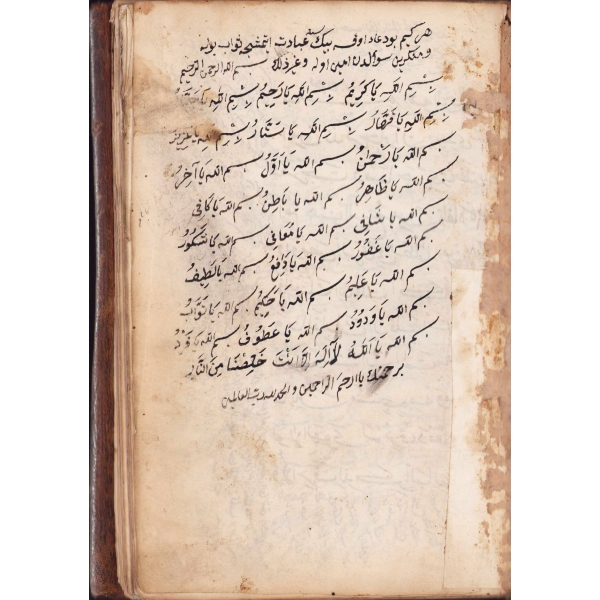 هر كيم بو دعاء اوقسه بيك سنه عبادت ايتمشجه ثواب بوله
و منكرين سوالندن امين اوله و عذابدن بسم الله الرحمن الرحيم
بِسْمِ اللهِ يَا كَرِيمُ بِسْمِ اللهِ يَا رَحِيمُ بِسْمِ اللهِ يَا جَبَّارُ
بِسْمِ اللهِ يَا قَهَّارُ بِسْمِ اللهِ يَا سَتَّارُ بِسْمِ اللهِ يَا عَزِيزُ
بسم الله يَا رَحْمٰنُ بسم الله يَا اَوَّلُ بسم الله يَا آخِرُ
بسم الله يَا ظَاهِرُ بسم الله يَا بَاطِنُ بسم الله يَا كَافِى
بسم الله يَا شَافِى بسم الله يَا مُعَافِى بسم الله يَا شَكُورُ
بسم الله يَا غَفُورُ بسم الله يَا دَافِعُ بسم الله يَا لَطِيفُ
بسم الله يَا عَلِيمُ بسم الله يَا حَكِيمُ بسم الله يَا تَوَّابُ
بسم الله يَا وَدُودُ بسم الله يَا عَطُوفُ بسم الله يَا
بسم الله يَا اَللهُ لَآ اِلٰهَ اِلَّا اَنْتَ خَلِّصْنَا مِنَ النَّارِ
برحمتك يا ارحم الراحمين والحمد لله رب العالمين